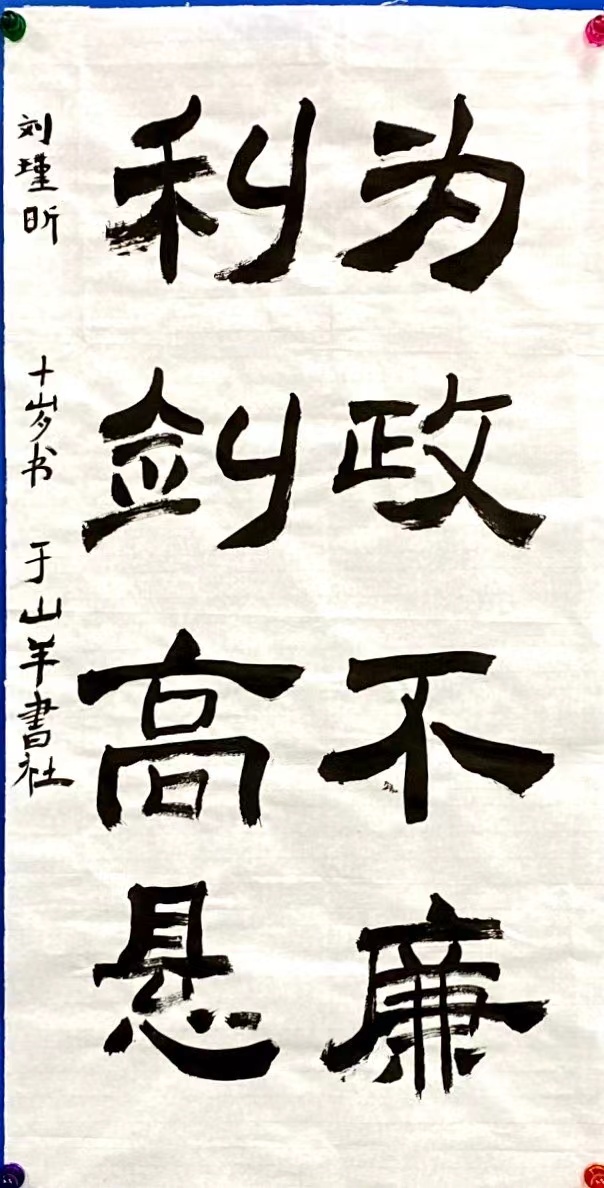 为政不廉
利剑高悬
刘瑾昕 十岁书 于山羊書社